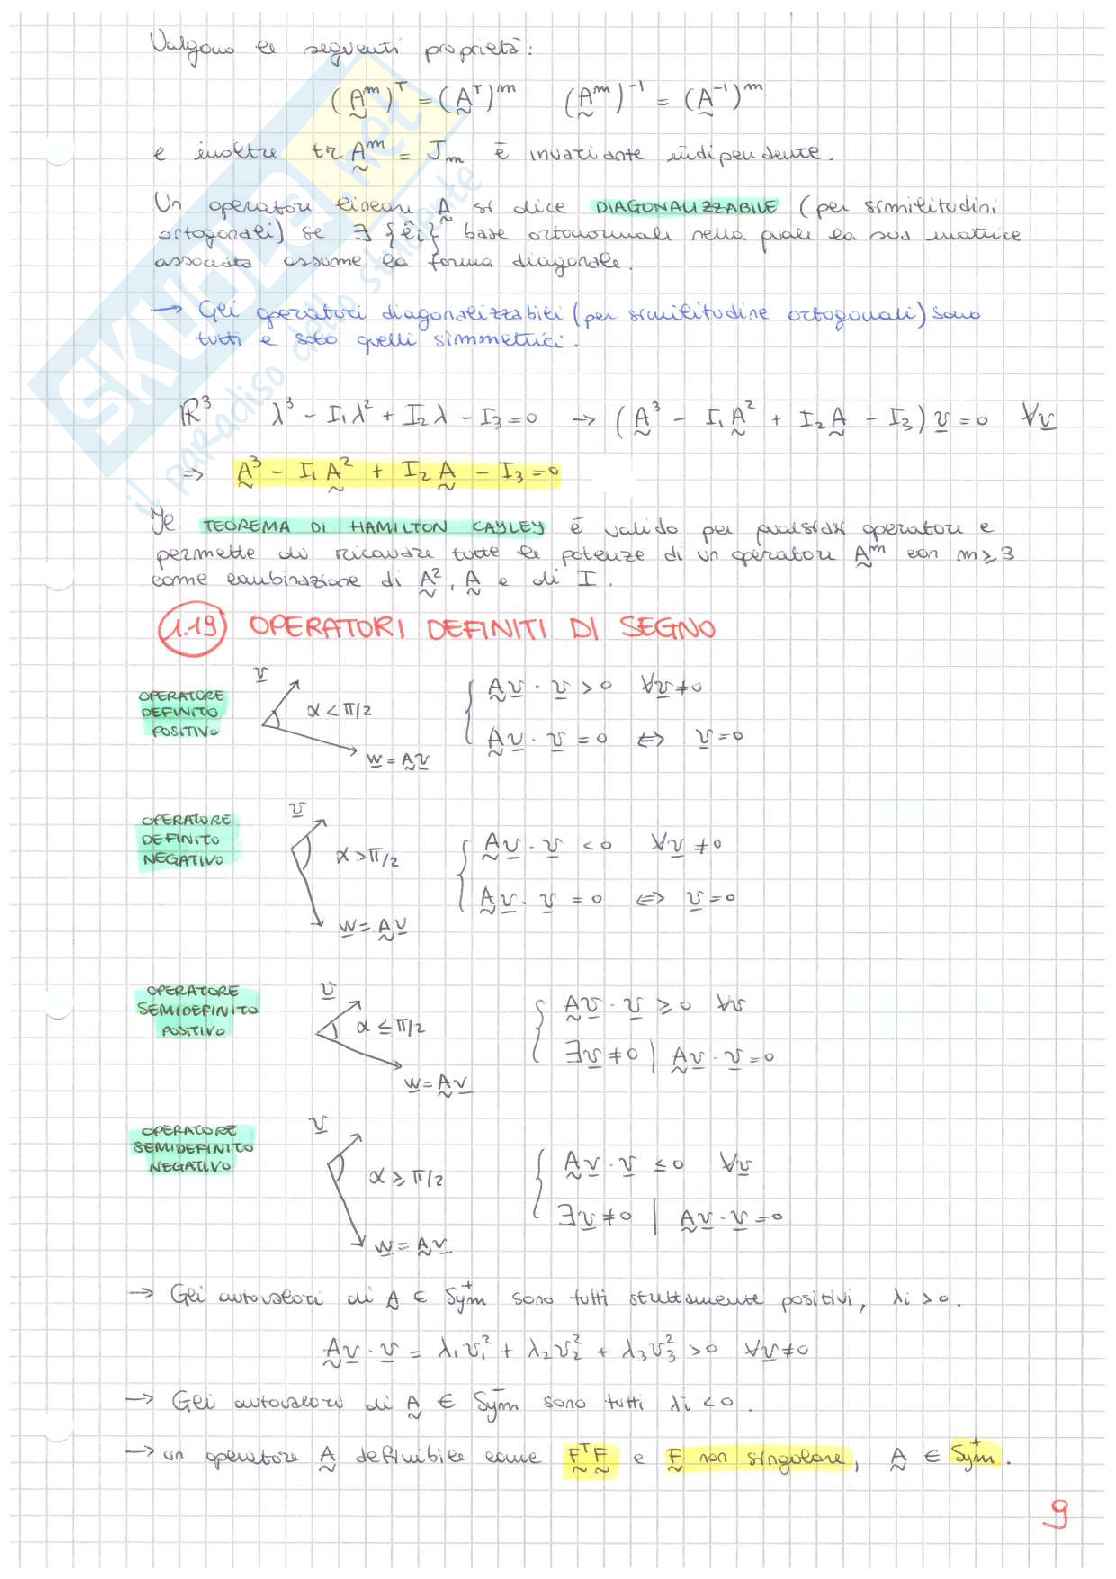 Valgono le seguenti proprietà:
(A^m)^T = (A^T)^m (A^m)^-1 = (A^-1)^m
e inoltre tr A^m = J_m è invariante indipendente.
Un operatore lineare A si dice DIAGONALIZZABILE (per similitudini
ortogonali) se ∃ {êi} base ortonormale nella quale la sua matrice
associata assume la forma diagonale.
→ Gli operatori diagonalizzabili (per similitudine ortogonali) sono
tutti e solo quelli simmetrici.
ℝ³ λ³ - I₁λ² + I₂λ - I₃ = 0 → (A³ - I₁A² + I₂A - I₃) v = 0 ∀v
⇒ A³ - I₁A² + I₂A - I₃ = 0
Il TEOREMA DI HAMILTON CAYLEY è valido per qualsiasi operatore e
permette di ricavare tutte le potenze di un operatore A^m con m ≥ 3
come combinazione di A², A e di I.
1.19 OPERATORI DEFINITI DI SEGNO
OPERATORE
DEFINITO
POSITIVO
v
α < π/2
w = Av
Av · v > 0 ∀v ≠ 0
Av · v = 0 ⇔ v = 0
OPERATORE
DEFINITO
NEGATIVO
v
α > π/2
w = Av
Av · v < 0 ∀v ≠ 0
Av · v = 0 ⇔ v = 0
OPERATORE
SEMIDEFINITO
POSITIVO
v
α ≤ π/2
w = Av
Av · v ≥ 0 ∀v
∃v ≠ 0 | Av · v = 0
OPERATORE
SEMIDEFINITO
NEGATIVO
v
α ≥ π/2
w = Av
Av · v ≤ 0 ∀v
∃v ≠ 0 | Av · v = 0
→ Gli autovalori di A ∈ Sym⁺ sono tutti strettamente positivi, λi > 0.
Av · v = λ₁v₁² + λ₂v₂² + λ₃v₃² > 0 ∀v ≠ 0
→ Gli autovalori di A ∈ Sym⁻ sono tutti λi < 0.
→ un operatore A definibile come F^T F e F non singolare, A ∈ Sym⁺.
9
SKUOLA.net
il paradiso dello studente